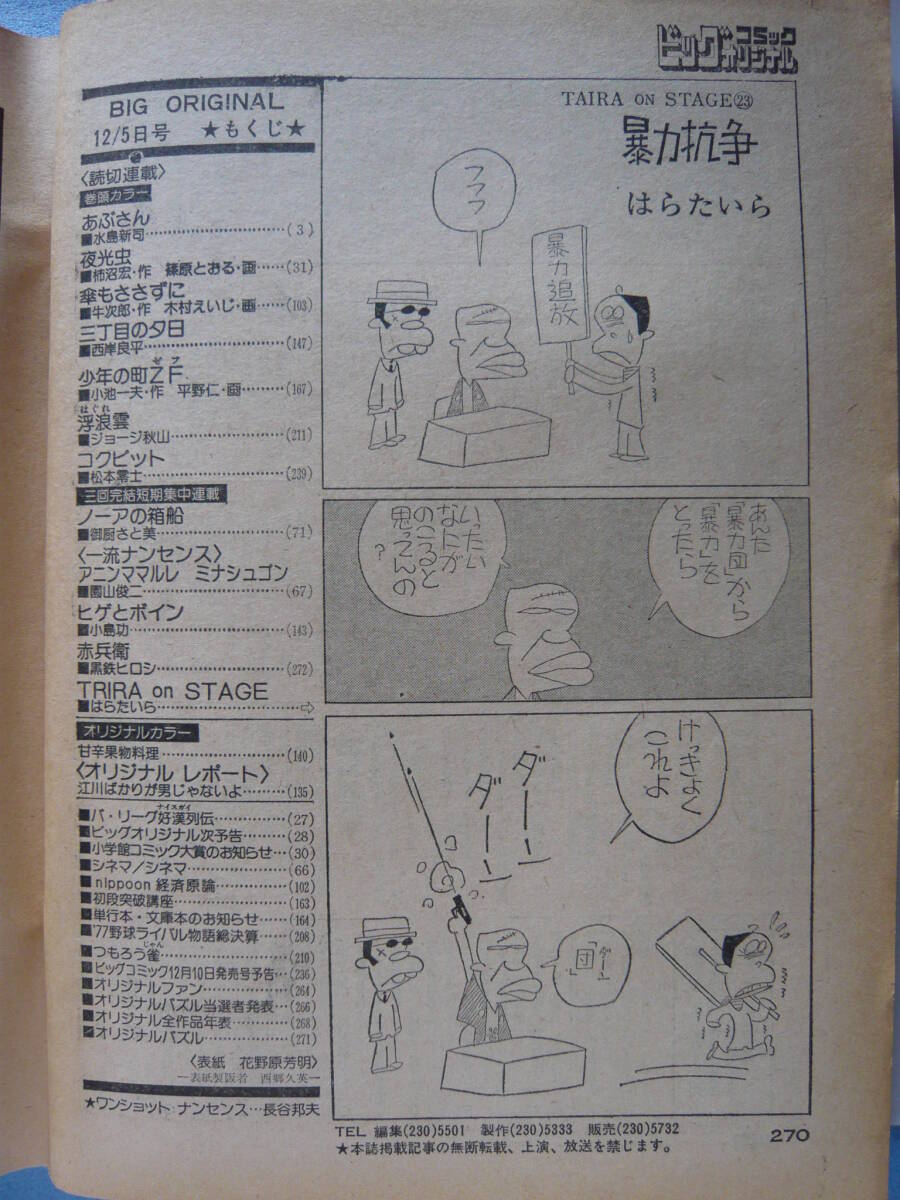 ビッグコミックオリジナル
BIG ORIGINAL
12/5日号 ★もくじ★
〈読切連載〉
巻頭カラー
あぶさん
■水島新司……(3)
夜光虫
■柿沼宏・作 篠原とおる・画……(31)
傘もささずに
■牛次郎・作 木村えいじ・画……(103)
三丁目の夕日
■西岸良平……(147)
ゼフ
少年の町ZF
■小池一夫・作 平野仁・画……(167)
はぐれ
浮浪雲
■ジョージ秋山……(211)
コクピット
■松本零士……(239)
三回完結短期集中連載
ノーアの箱船
■御厨さと美……(71)
〈一流ナンセンス〉
アニンママルレ ミナシュゴン
■園山俊二……(67)
ヒゲとボイン
■小島功……(143)
赤兵衛
■黒鉄ヒロシ……(272)
TRIRA on STAGE
■はらたいら……⇨
オリジナルカラー
甘辛果物料理……(140)
〈オリジナル レポート〉
江川ばかりが男じゃないよ……(135)
ナイスガイ
■パ・リーグ好漢列伝……(27)
■ビッグオリジナル次予告……(28)
■小学館コミック大賞のお知らせ…(30)
■シネマ/シネマ……(66)
■nippoon 経済原論……(102)
■初段突破講座……(163)
■単行本・文庫本のお知らせ……(164)
■'77野球ライバル物語総決算…(208)
じゃん
■つもろう雀……(210)
■ビッグコミック12月10日発売号予告…(236)
■オリジナルファン……(264)
■オリジナルパズル当選者発表…(266)
■オリジナル全作品年表……(268)
■オリジナルパズル……(271)
〈表紙 花野原芳明〉
―表紙製版者 西郷久英―
★ワンショット ナンセンス…長谷邦夫
TAIRA ON STAGE㉓
暴力抗争
はらたいら
暴力追放
フフフ
あんた
「暴力団」から
「暴力」を
とったら
いったい
なにが
のこると
思ってんの
?
けっきょく
これよ
ダーー
ダーー
ダー
「団」
TEL 編集(230)5501 製作(230)5333 販売(230)5732
★本誌掲載記事の無断転載、上演、放送を禁じます。
270